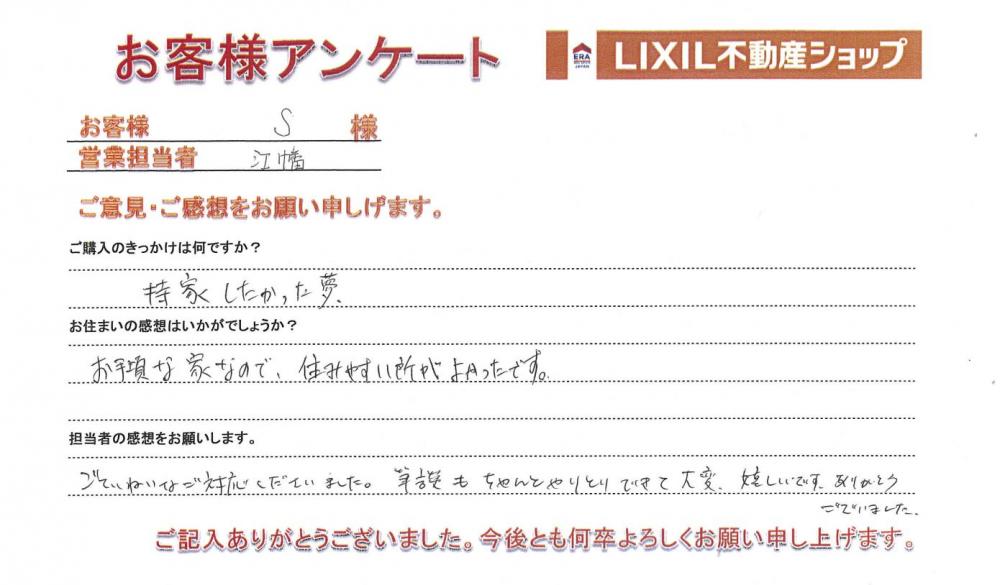 お客様アンケート
ERA
JAPAN
LIXIL不動産ショップ
お客様 S 様
営業担当者 江幡
ご意見・ご感想をお願い申しげます。
ご購入のきっかけは何ですか？
持家したかった夢、
お住まいの感想はいかがでしょうか？
お手頃な家なので、住みやすい所がよかったです。
担当者の感想をお願いします。
ごていねいなご対応しだていました。筆談もちゃんとやりとりできて大変、嬉しいです。ありがとう
ございました。
ご記入ありがとうございました。今後とも何卒よろしくお願い申し上げます。